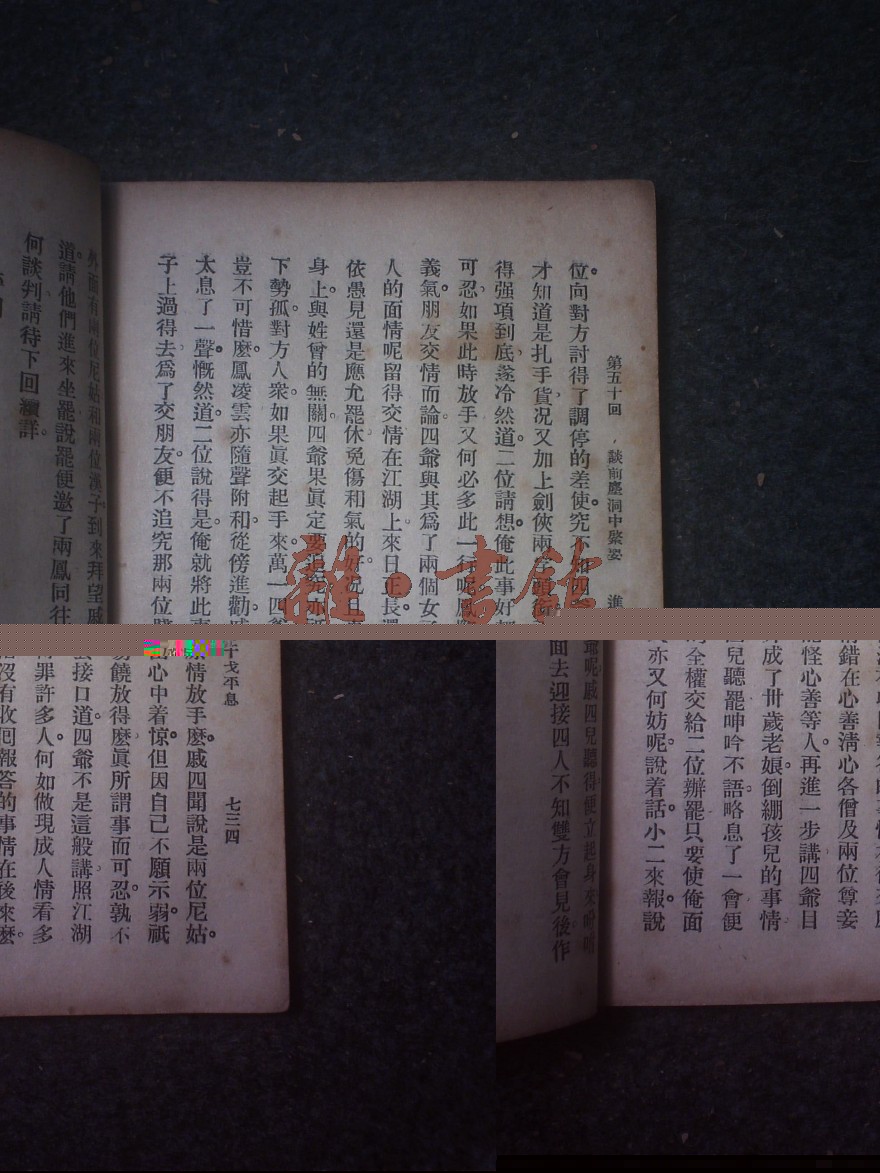 第五十回 談前塵洞中檠姿 進
位向對方討得了調停的差使究不知四
才知道是扎手貨况又加上劍俠兩字頭銜
得强項到底遂冷然道二位請想俺此事好
可忍如果此時放手又何必多此一行呢鳳
義氣朋友交情而論四爺與其爲了兩個女子
人的面情呢留得交情在江湖上來日正長還
依愚見還是應允罷休免傷和氣的好况且
身上與姓曾的無關四爺果眞定要追究亦祇
下勢孤對方人衆如果眞交起手來萬一四爺
豈不可惜麽鳳凌雲亦隨聲附和從傍進勸
太息了一聲慨然道二位說得是俺就將此事
子上過得去爲了交朋友便不追究那兩位
外面有兩位尼姑和兩位漢子到來拜望戚
道請他們進來坐罷說罷便邀了兩鳳同往
何談判請待下回續詳
雜·書館
干戈平息 七三四
情放手麽戚四聞說是兩位尼姑
心中着惊但因自己不願示弱祇
饒放得麽眞所謂事而可忍孰不
接口道四爺不是這般講照江湖
罪許多人何如做現成人情看多
沒有收囘報答的事情在後來麽
錯在心善淸心各僧及兩位尊妾
怪心善等人再進一步講四爺目
成了卅歲老娘倒綳孩兒的事情
兒聽罷呻吟不語略息了一會便
全權交給二位辦罷只要使俺面
亦又何妨呢說着話小二來報說
爺呢戚四兒聽得便立起身來吩咐
面去迎接四人不知雙方會見後作